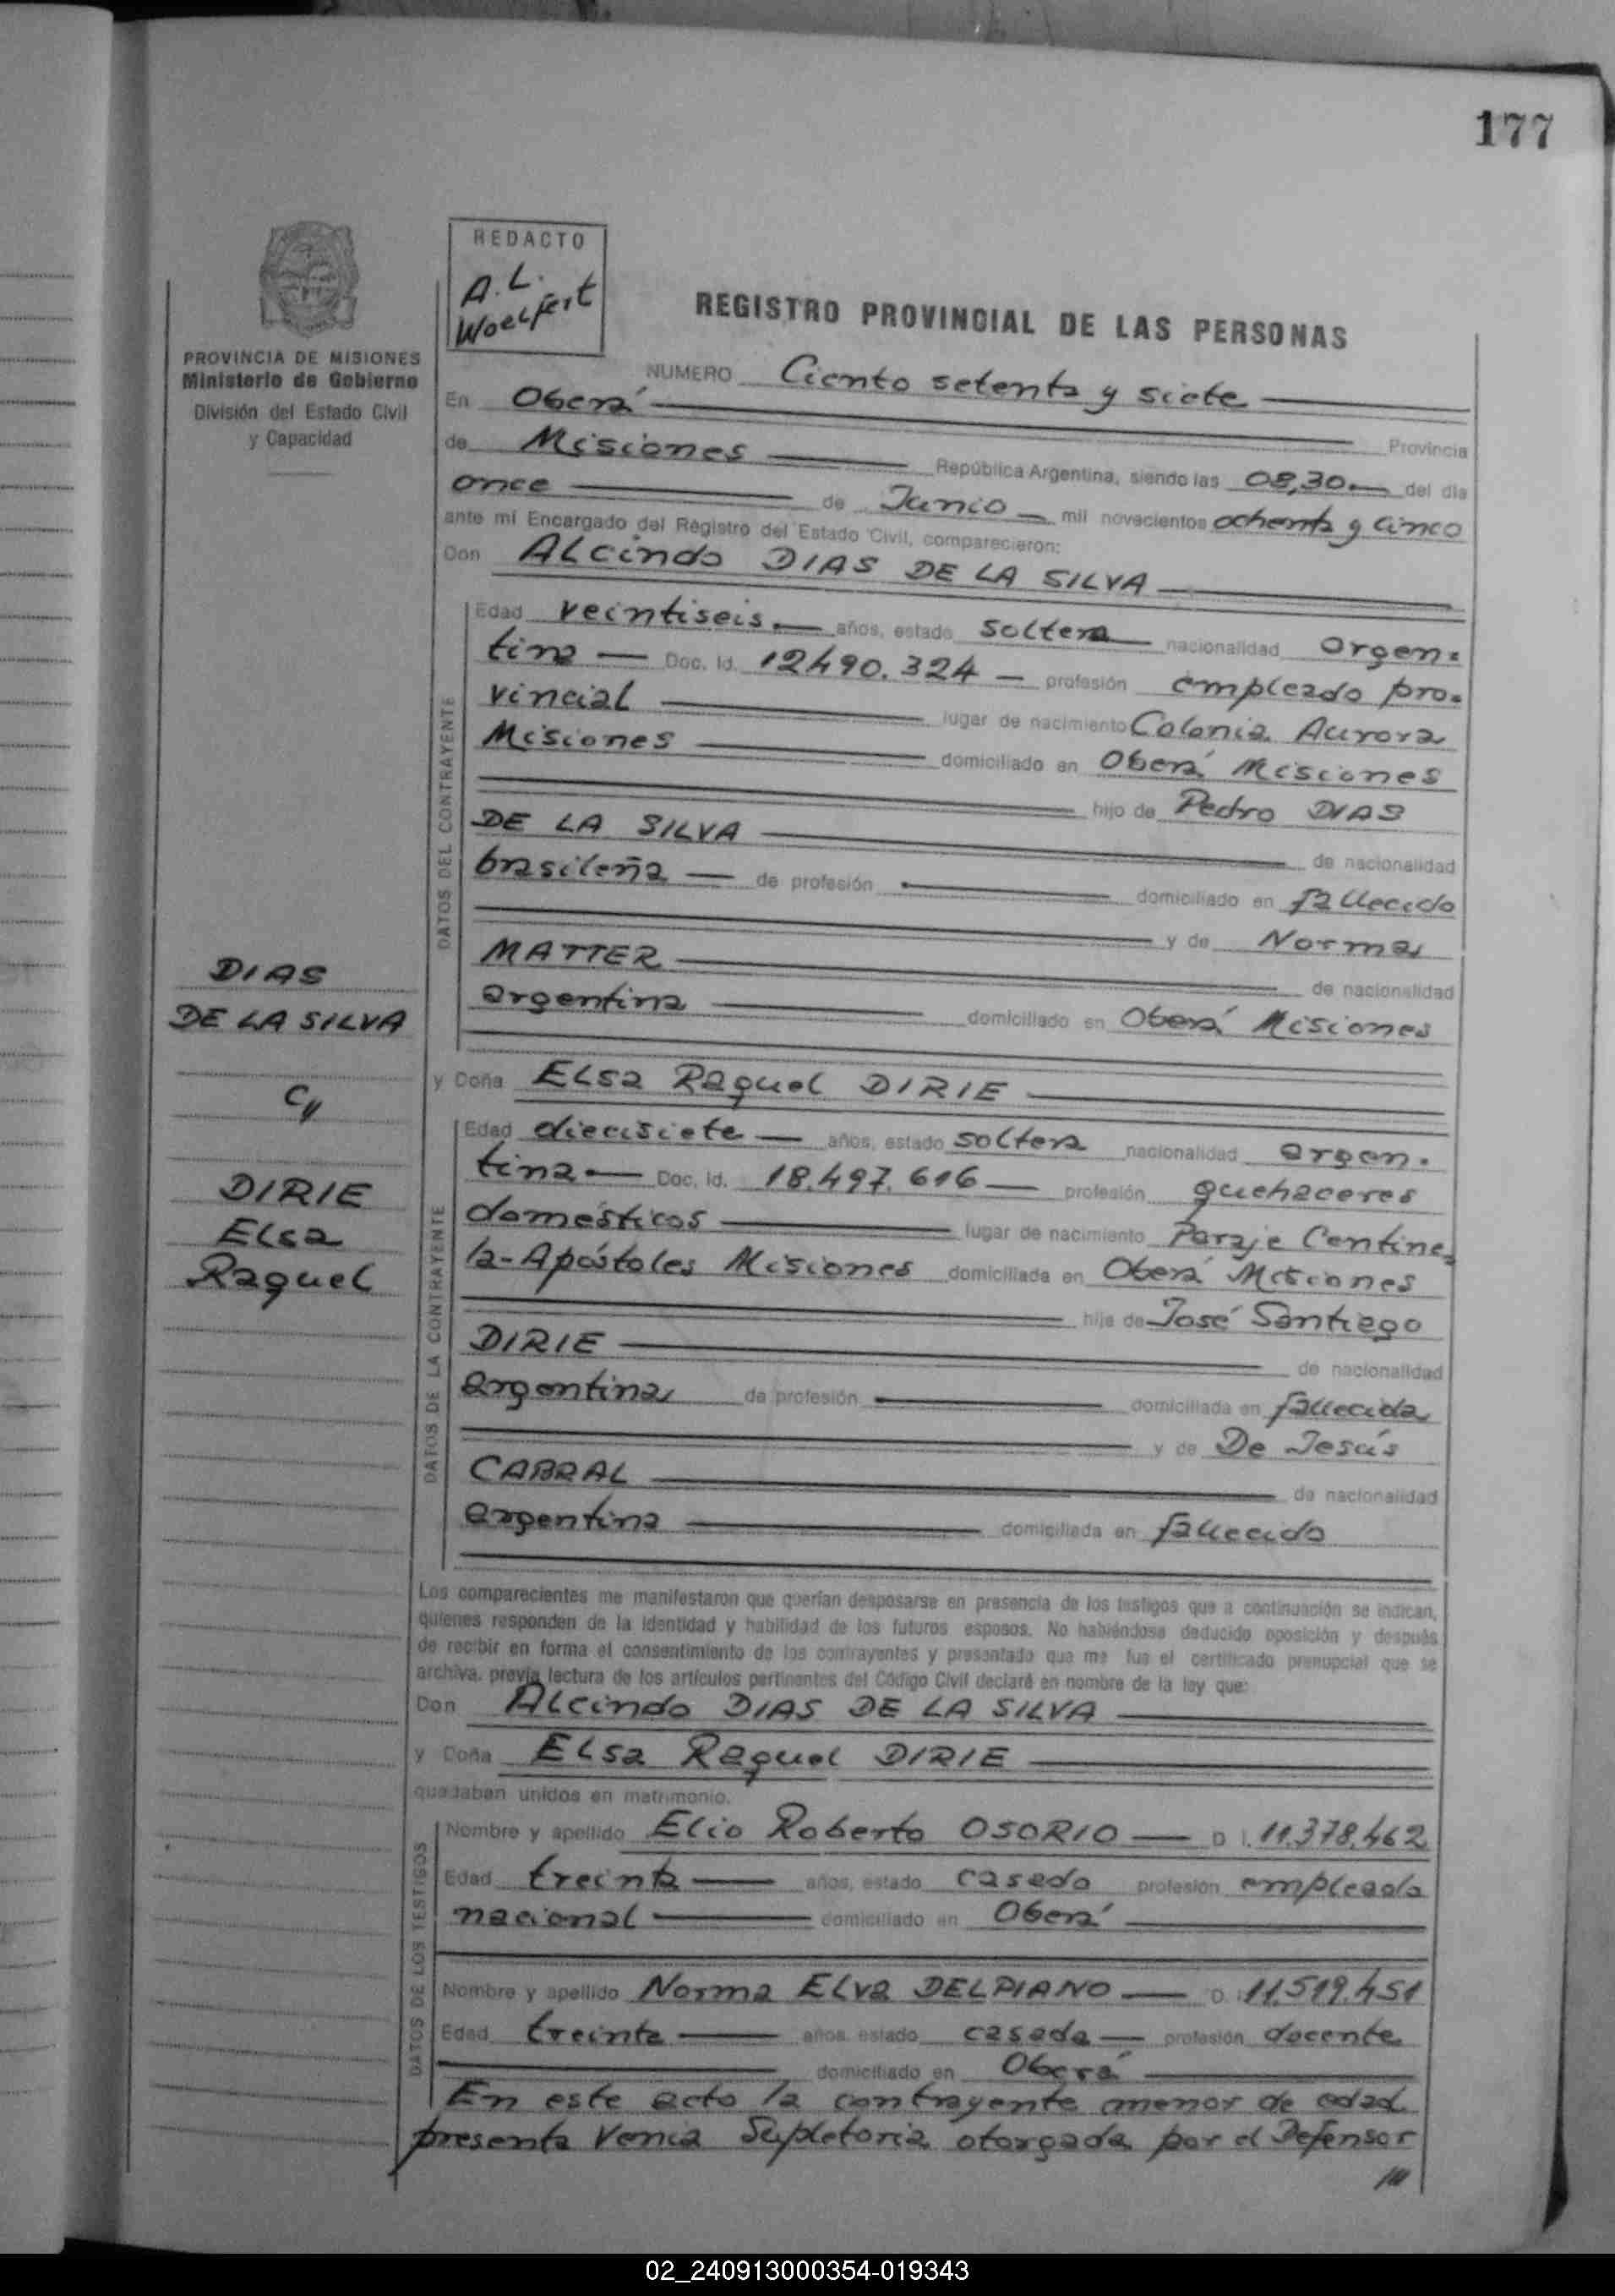 177
REDACTO
A. L.
Woelfert
REGISTRO PROVINCIAL DE LAS PERSONAS
PROVINCIA DE MISIONES
Ministerio de Gobierno
División del Estado Civil
y Capacidad
NUMERO Ciento setenta y siete
En Oberá Provincia
de Misiones República Argentina, siendo las 08,30. del día
once de Junio mil novecientos ochenta y cinco
ante mí Encargado del Registro del Estado Civil, comparecieron:
Don ALcindo DIAS DE LA SILVA
DATOS DEL CONTRAYENTE
Edad veintiseis años, estado soltero nacionalidad argen-
tina Doc. Id. 12490.324 profesión empleado pro-
vincial lugar de nacimiento Colonia Aurora
Misiones domiciliado en Oberá Misiones
hijo de Pedro DIAS
DE LA SILVA de nacionalidad
brasileña de profesión domiciliado en fallecido
y de Norma
MATTER de nacionalidad
argentina domiciliado en Oberá Misiones
DIAS
DE LA SILVA
c//
DIRIE
ELsa
Raquel
y Doña ELsa Raquel DIRIE
DATOS DE LA CONTRAYENTE
Edad diecisiete años, estado soltera nacionalidad argen-
tina Doc. Id. 18.497.616 profesión quehaceres
domésticos lugar de nacimiento Paraje Centine
la-Apóstoles Misiones domiciliada en Oberá Misiones
hija de José Santiago
DIRIE de nacionalidad
argentina de profesión domiciliada en fallecida
y de De Jesús
CABRAL de nacionalidad
argentina domiciliada en fallecido
Los comparecientes me manifestaron que querían desposarse en presencia de los testigos que a continuación se indican,
quienes responden de la identidad y habilidad de los futuros esposos. No habiéndose deducido oposición y después
de recibir en forma el consentimiento de los contrayentes y presentado que me fue el certificado prenupcial que se
archiva, previa lectura de los artículos pertinentes del Código Civil declaré en nombre de la ley que:
Don ALcindo DIAS DE LA SILVA
y Doña ELsa Raquel DIRIE
quedaban unidos en matrimonio.
DATOS DE LOS TESTIGOS
Nombre y apellido Elio Roberto OSORIO D.I. 11.378.462
Edad treinta años, estado casado profesión empleado
nacional domiciliado en Oberá
Nombre y apellido Norma ELva DELPIANO D. 11.519.451
Edad treinta años, estado casada profesión docente
domiciliado en Oberá
En este acto la contrayente menor de edad
presenta Venia Supletoria otorgada por el Defensor
///
02_240913000354-019343